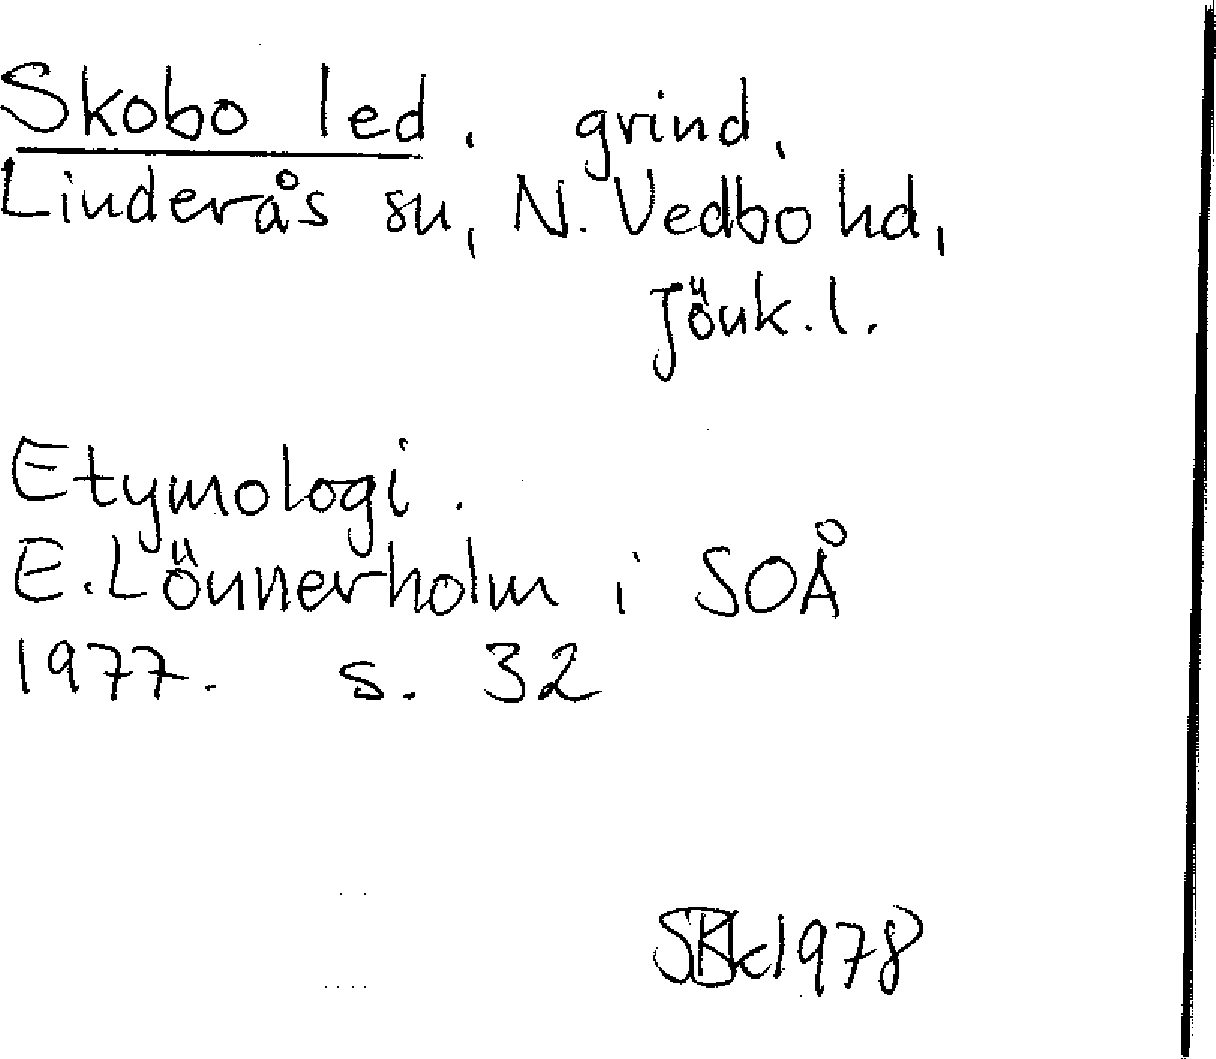 Skobo led, grind,
Linderås sn, N. Vedbo hd,
Jönk. l.
Etymologi.
E. Lönnerholm i SOÅ
1977. s. 32
1978